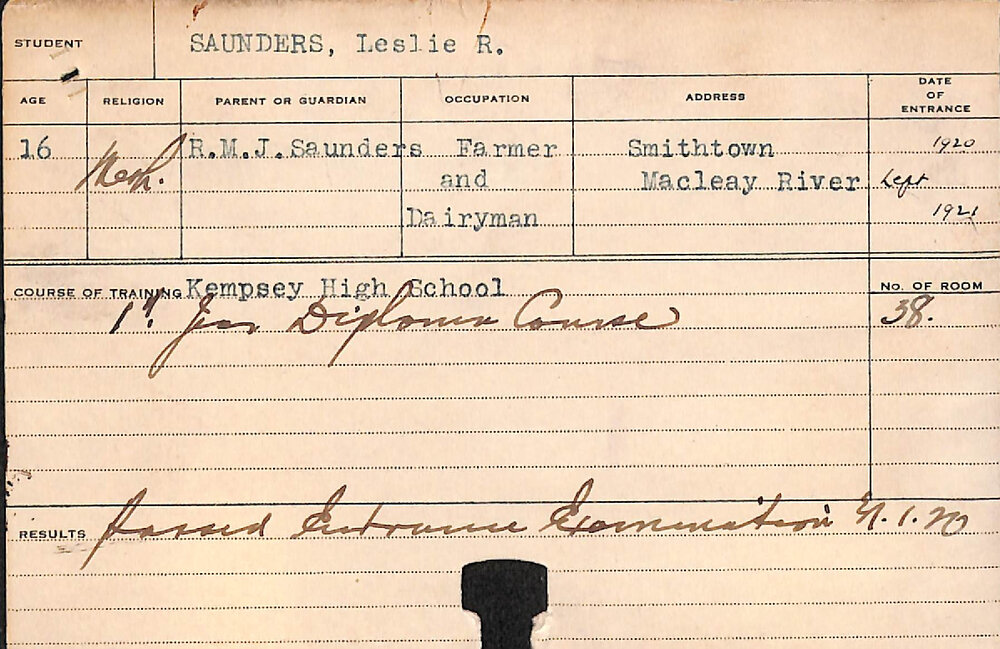 STUDENT SAUNDERS, Leslie R.
AGE RELIGION PARENT OR GUARDIAN OCCUPATION ADDRESS DATE OF ENTRANCE
16 Meth. R.M.J.Saunders Farmer Smithtown 1920
and Macleay River Sept
Dairyman 1921
COURSE OF TRAINING Kempsey High School No. OF ROOM
1st Year Diploma Course 38.
RESULTS Passed Entrance Examination